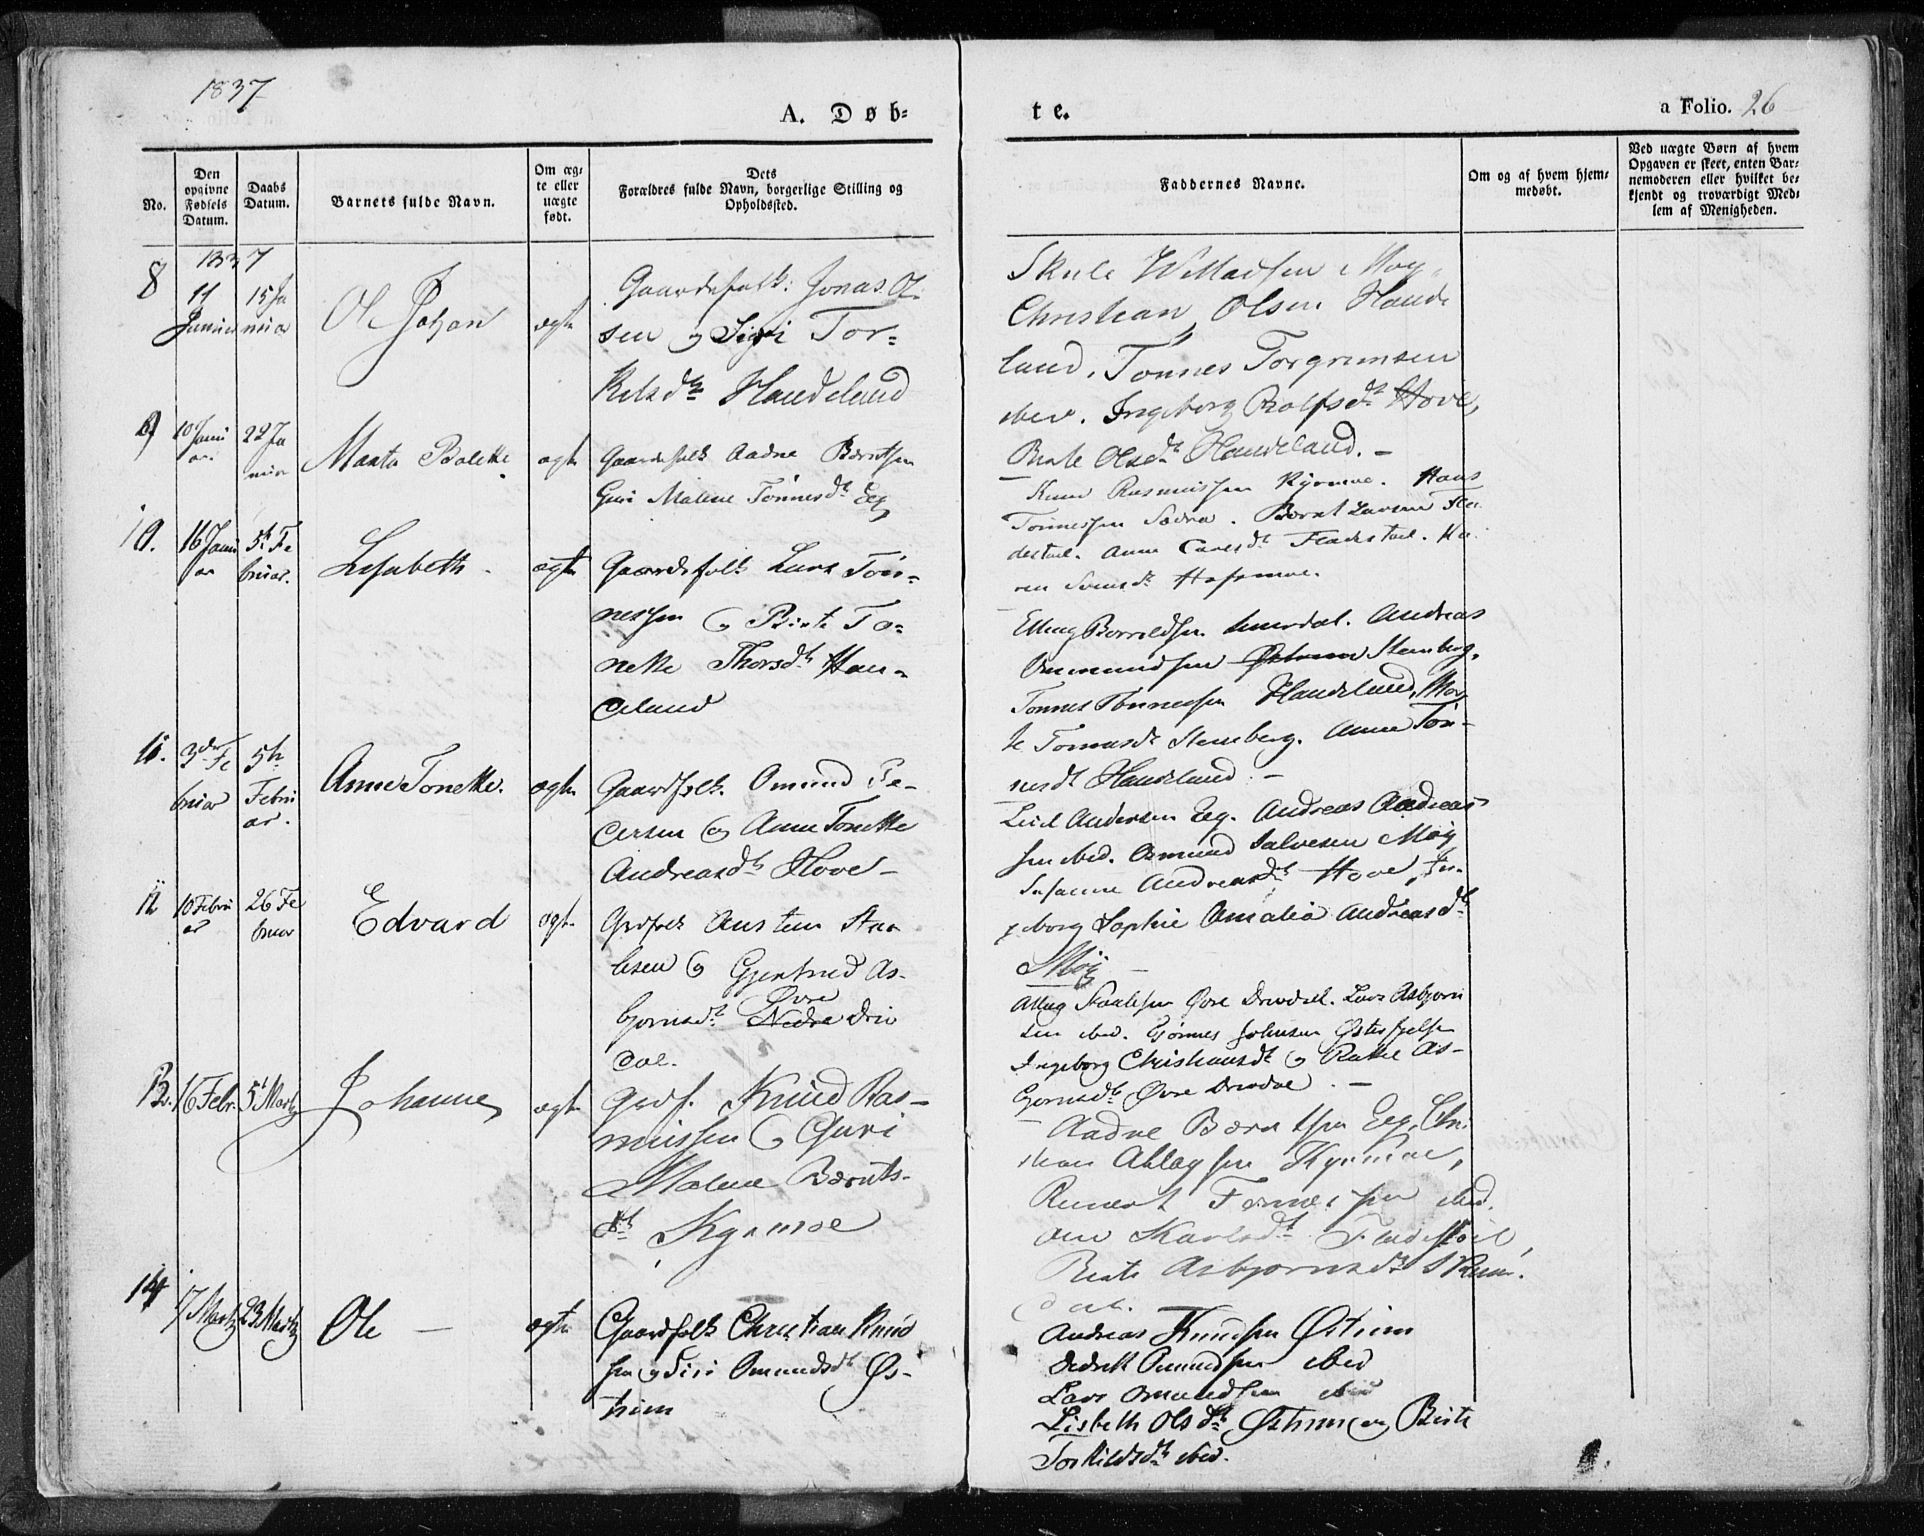 1837
A. Døb-
te.
a Folio. 26
No.
Den opgivne Fødsels Datum.
Daabs Datum.
Barnets fulde Navn.
Om ægte eller uægte født.
Dets Forældres fulde Navn, borgerlige Stilling og Opholdssted.
Faddernes Navne.
Om og af hvem hjemmedøbt.
Ved uægte Børn af hvem Opgaven er skeet, enten Barnemoderen eller hvilket bekjendt og troværdigt Medlem af Menigheden.
1837
8
11 Januar
15 Ja
nuar
Ole Johan
ægte
Gaardsfolk: Jonas Ol
sen og Siri Tor-
kelsdt Handeland
Skule Willadsen Moy
Christian Olsen Hande
land. Tönnes Torgrimsen
ibid. Ingeborg Rolfsdt Hove,
Berte Olsdt Handeland. -
9
10 Janu
ar
22 Ja
nuar
Marta Bolette
ægte
Gaardsfolk Aadne Berntsen
Guri Malene Tönnesdt Eeg
Knud Rasmussen Kyrmoe. Hans
Tönnessen Sædra. Bernt Larsen Fla
destæl. Anne Carlsdt Fladestæl. Ka
ren
10.
16 Janu
ar
5te Fe
bruar.
Lisabeth -
ægte
Gaardsfolk Lars Tön-
nessen og Birte To-
nette Thorsdt Han-
deland
Elling Bareldsen Andreas
Ommundsen Østrem Steenberg.
Tonnes Tönnessen Handeland, Mar
te Tönnesdt Steenberg. Anne Tön-
nesdt Handeland. -
11.
3die Fe
bruar
5te
Febru
ar.
Anne Tonette.
ægte
Gaardfolk. Omund Pe-
dersen og Anne Tonette
Andreasdt Hove -
Leid Andersen Eeg. Andreas Andreas
sen ibid. Osmund Salvesen Møy
Susanne Andreasdt Hove, In-
geborg Sophie Amalia Andreasdt
Møy -
12
10 Febru
ar
26 Fe
bruar
Edvard
ægte
Grdfolk Austen Staa
lesen og Gjertrud As-
bjornsdt Øvre Nedre Driv
dal.
Atlag Staalesen Øvre Drivdal. Lars Asbjörn
sen ibid. Tjönnes Johnsen
Ingeborg Christiansdt og Rakel As-
bjornsdt Øvre Drivdal. -
13.
16 Febr.
5te Martz
Johanne
ægte
Grdf. Knud Ras-
mussen og Guri
Malene Bernts-
dt Kyrmoe
Aadne Berntsen Eeg, Chri
stian Atlagsen Kyrmoe,
Reinert Tønnessen ibid.
Ane Karlsdt Fladestæl,
Berte Asbjornsdt
dal.
14
17 Martz
23 Martz
Ole -
ægte
Gaardfolk Christian Knud
sen og Siri Omundsdt Øs-
trem
Andreas Knudsen Østrem
Didrik Omundsen ibid
Lars Omundsen ibid
Lisbeth Olsdt Østrem og Birte
Torkildsdt ibid.